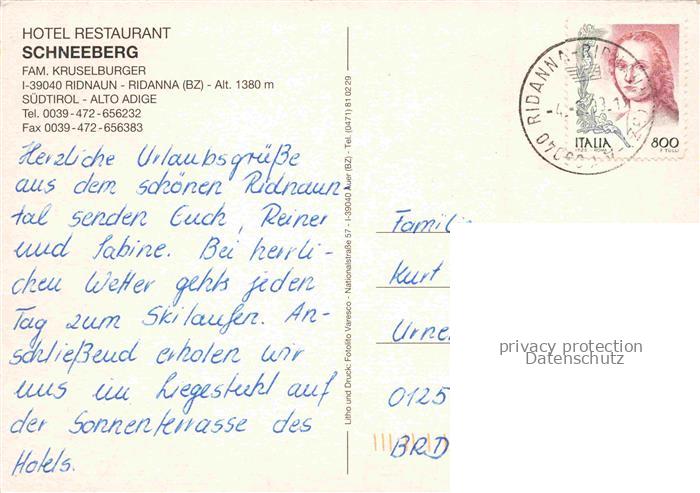 HOTEL RESTAURANT
SCHNEEBERG
FAM. KRUSELBURGER
I-39040 RIDNAUN - RIDANNA (BZ) - Alt. 1380 m
SÜDTIROL - ALTO ADIGE
Tel. 0039-472-656232
Fax 0039-472-656383
Herzliche Urlaubsgrüße
aus dem schönen Ridnaun-
tal senden Euch, Reiner
und Sabine. Bei herrli-
chen Wetter gehts jeden
Tag zum Skilaufen. An-
schließend erholen wir
uns im Liegestuhl auf
der Sonnenterrasse des
Hotels.
Litho und Druck: Fotolito Varesco - Nationalstraße 57 - I-39040 Auer (BZ) - Tel. (0471) 81 02 29
RIDANNA
39040
ITALIA
800
Kurt
0125
BRD
privacy protection
Datenschutz